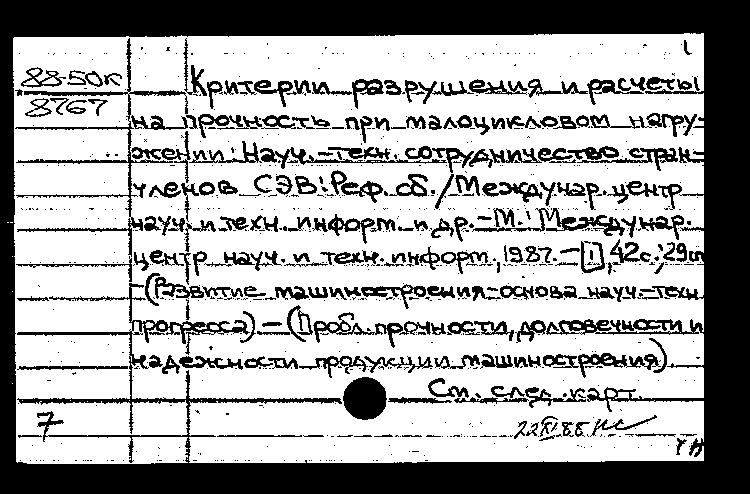 1
88-50к
8767
Критерии разрушения и расчеты
на прочность при малоцикловом нагру-
жении: Науч.-техн. сотрудничество стран-
членов СЭВ: Реф. сб. / Междунар. центр
науч. и техн. информ. и др. - М.: Междунар.
центр науч. и техн. информ., 1987. - [1], 42 с.; 29 см
- (Развитие машиностроения-основа науч.-техн.
прогресса) - (Пробл. прочности, долговечности и
надежности продукции машиностроения).
См. след. карт.
7
22 XI 88